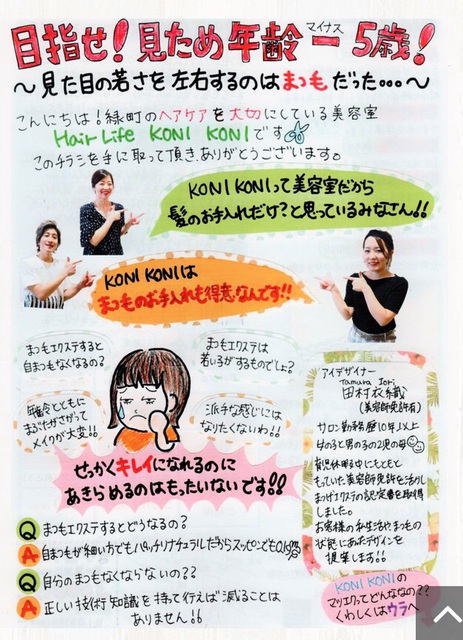 目指せ!見ため年齢マイナス5歳!
〜見た目の若さを左右するのはまつもだった…〜
こんにちは!緑町のヘアケアを大切にしている美容室
Hair Life KONI KONIです
このチラシを手に取って頂き、ありがとうございます。
KONI KONIって美容室だから
髪のお手入れだけ?と思っているみなさん!!
KONI KONIは
まつものお手入れも得意なんです!!
まつもエクステすると
自まつもなくなるの?
まつもエクステは
若い子がするものでしょ?
年齢とともに
まぶたがさがって
メイクが大変!!
派手な感じには
なりたくないわ!!
せっかくキレイになれるのに
あきらめるのはもったいないです!!
アイデザイナー
Tamura Iori
田村衣織
(美容師免許有)
サロン勤務歴10年以上
女の子と男の子の2児の母
育児休暇中にもともと
もっていた美容師免許を活かし
まつげエクステの認定書を取得
しました。
お客様の私生活やまつもの
状態にあったデザインを
提案します!!
Q まつもエクステするとどうなるの?
A 自まつもが細い方でもパッチリナチュラルだからスッピンでもOK
Q 自分のまつもなくならないの??
A 正しい技術、知識を持って行えば減ることは
ありません!!
KONI KONIの
マツエクってどんななの??
くわしくはウラへ